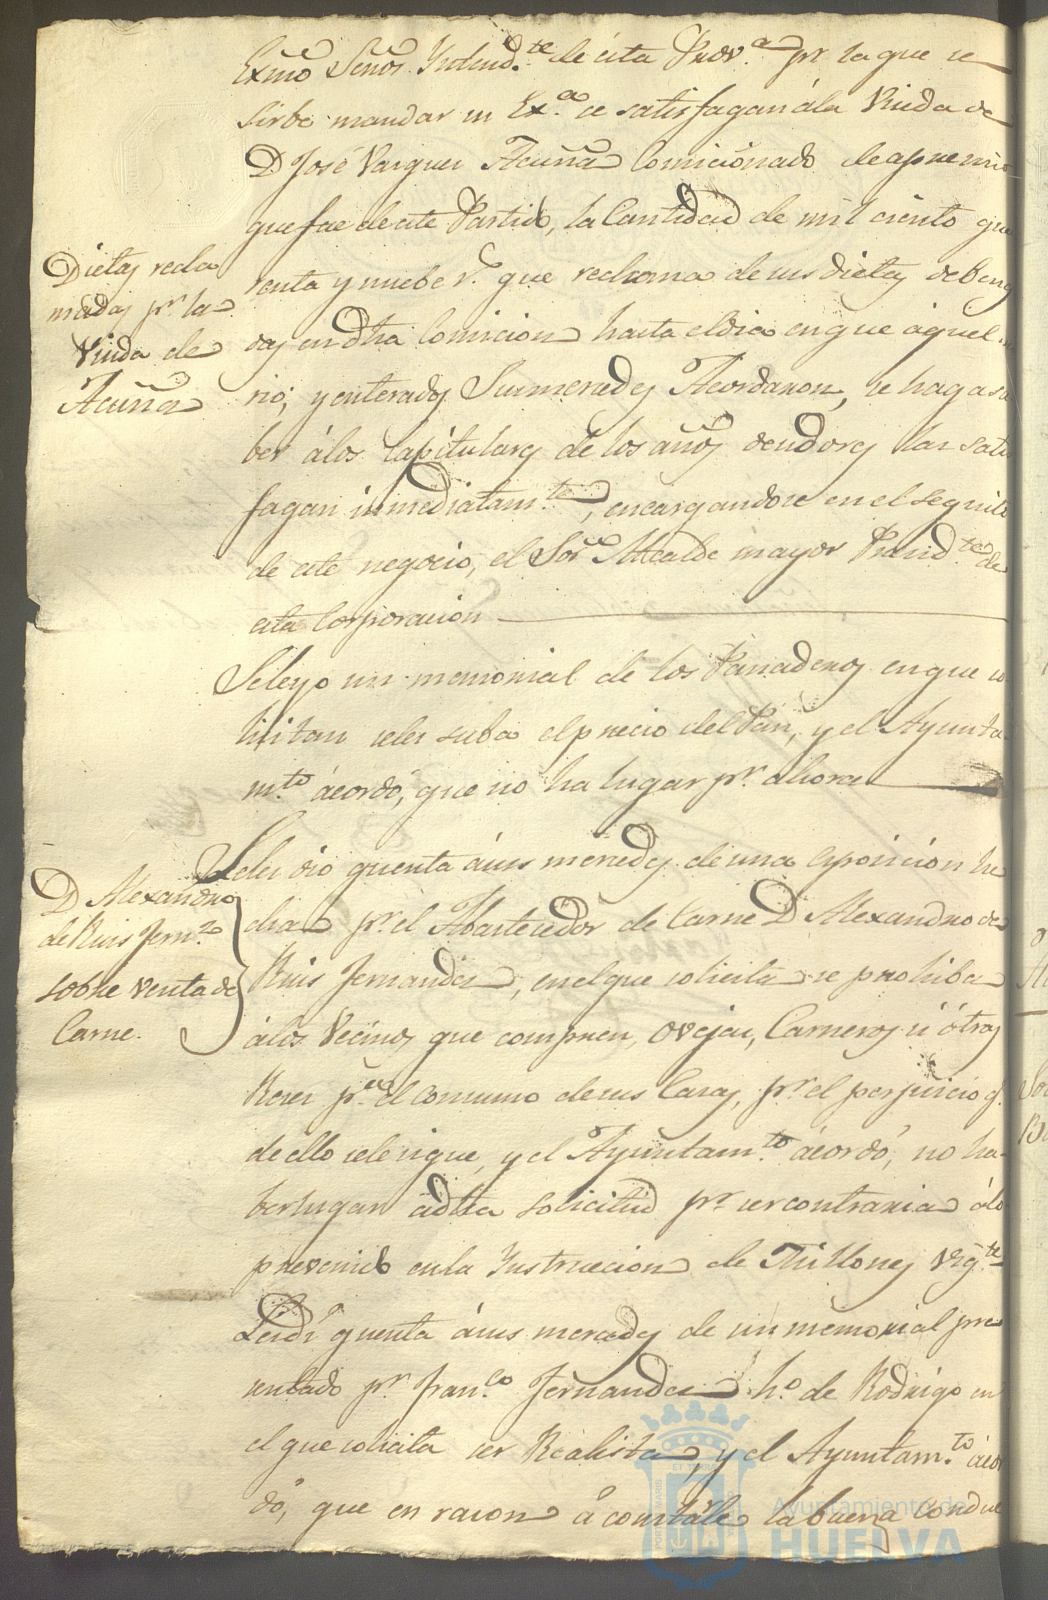 Exmô Señor Yntend.te de ésta Prov.a pr la que se
sirbe mandar su Ex.a se satisfagan á la Viuda de
D José Vazquez Acuña Comicionado de apremio
que fue de este Partido, la Cantidad de mil ciento qua
renta y nuebe r.s que reclama de sus dietas debeng
das en dha Comicion hasta el dia en que aquel mu
rió; y enterados Sus mercedes Acordaron, se haga sa
ber á los Capitulares de los años deudores las satis
fagan inmediatam.te, encargandose en el seguito
de este negocio, el Sor Alcalde mayor Presid.te de
esta Corporacion
Dietas recla
madas pr. la
Viuda de
Acuña
Se leyo un memorial de los Panaderos en que so
licitan se les suba el precio del Pan, y el Ayunta
m.to ácordó, que no ha lugar pr. ahora
D Alexandro
de Ruis Fern.z
sobre venta de
Carne.
Se les dio quenta á sus mercedes de una esposicion he
cha pr. el Abastecedor de Carne D Alexandro de
Ruis Fernandes, en el que solicita se prohiba
á los Vecinos que compren, Ovejas, Carneros ú ótras
Reses pa. el consumo de sus Casas, pr. el perjuicio q.
de ello se le sigue, y el Ayuntam.to ácordó, no ha-
ber lugar á dha solicitud pr. ser contraria á lo
prevenido en la Ynstruccion de Millones vig.te
Se dió quenta á sus mercedes de un memorial pre
sentado pr. Fran.co Fernandes h.o de Rodrigo en
el que solicita ser Realista, y el Ayuntam.to ácor
dó, que en rason á constarle la buena conduc
Ayuntamiento de
HUELVA